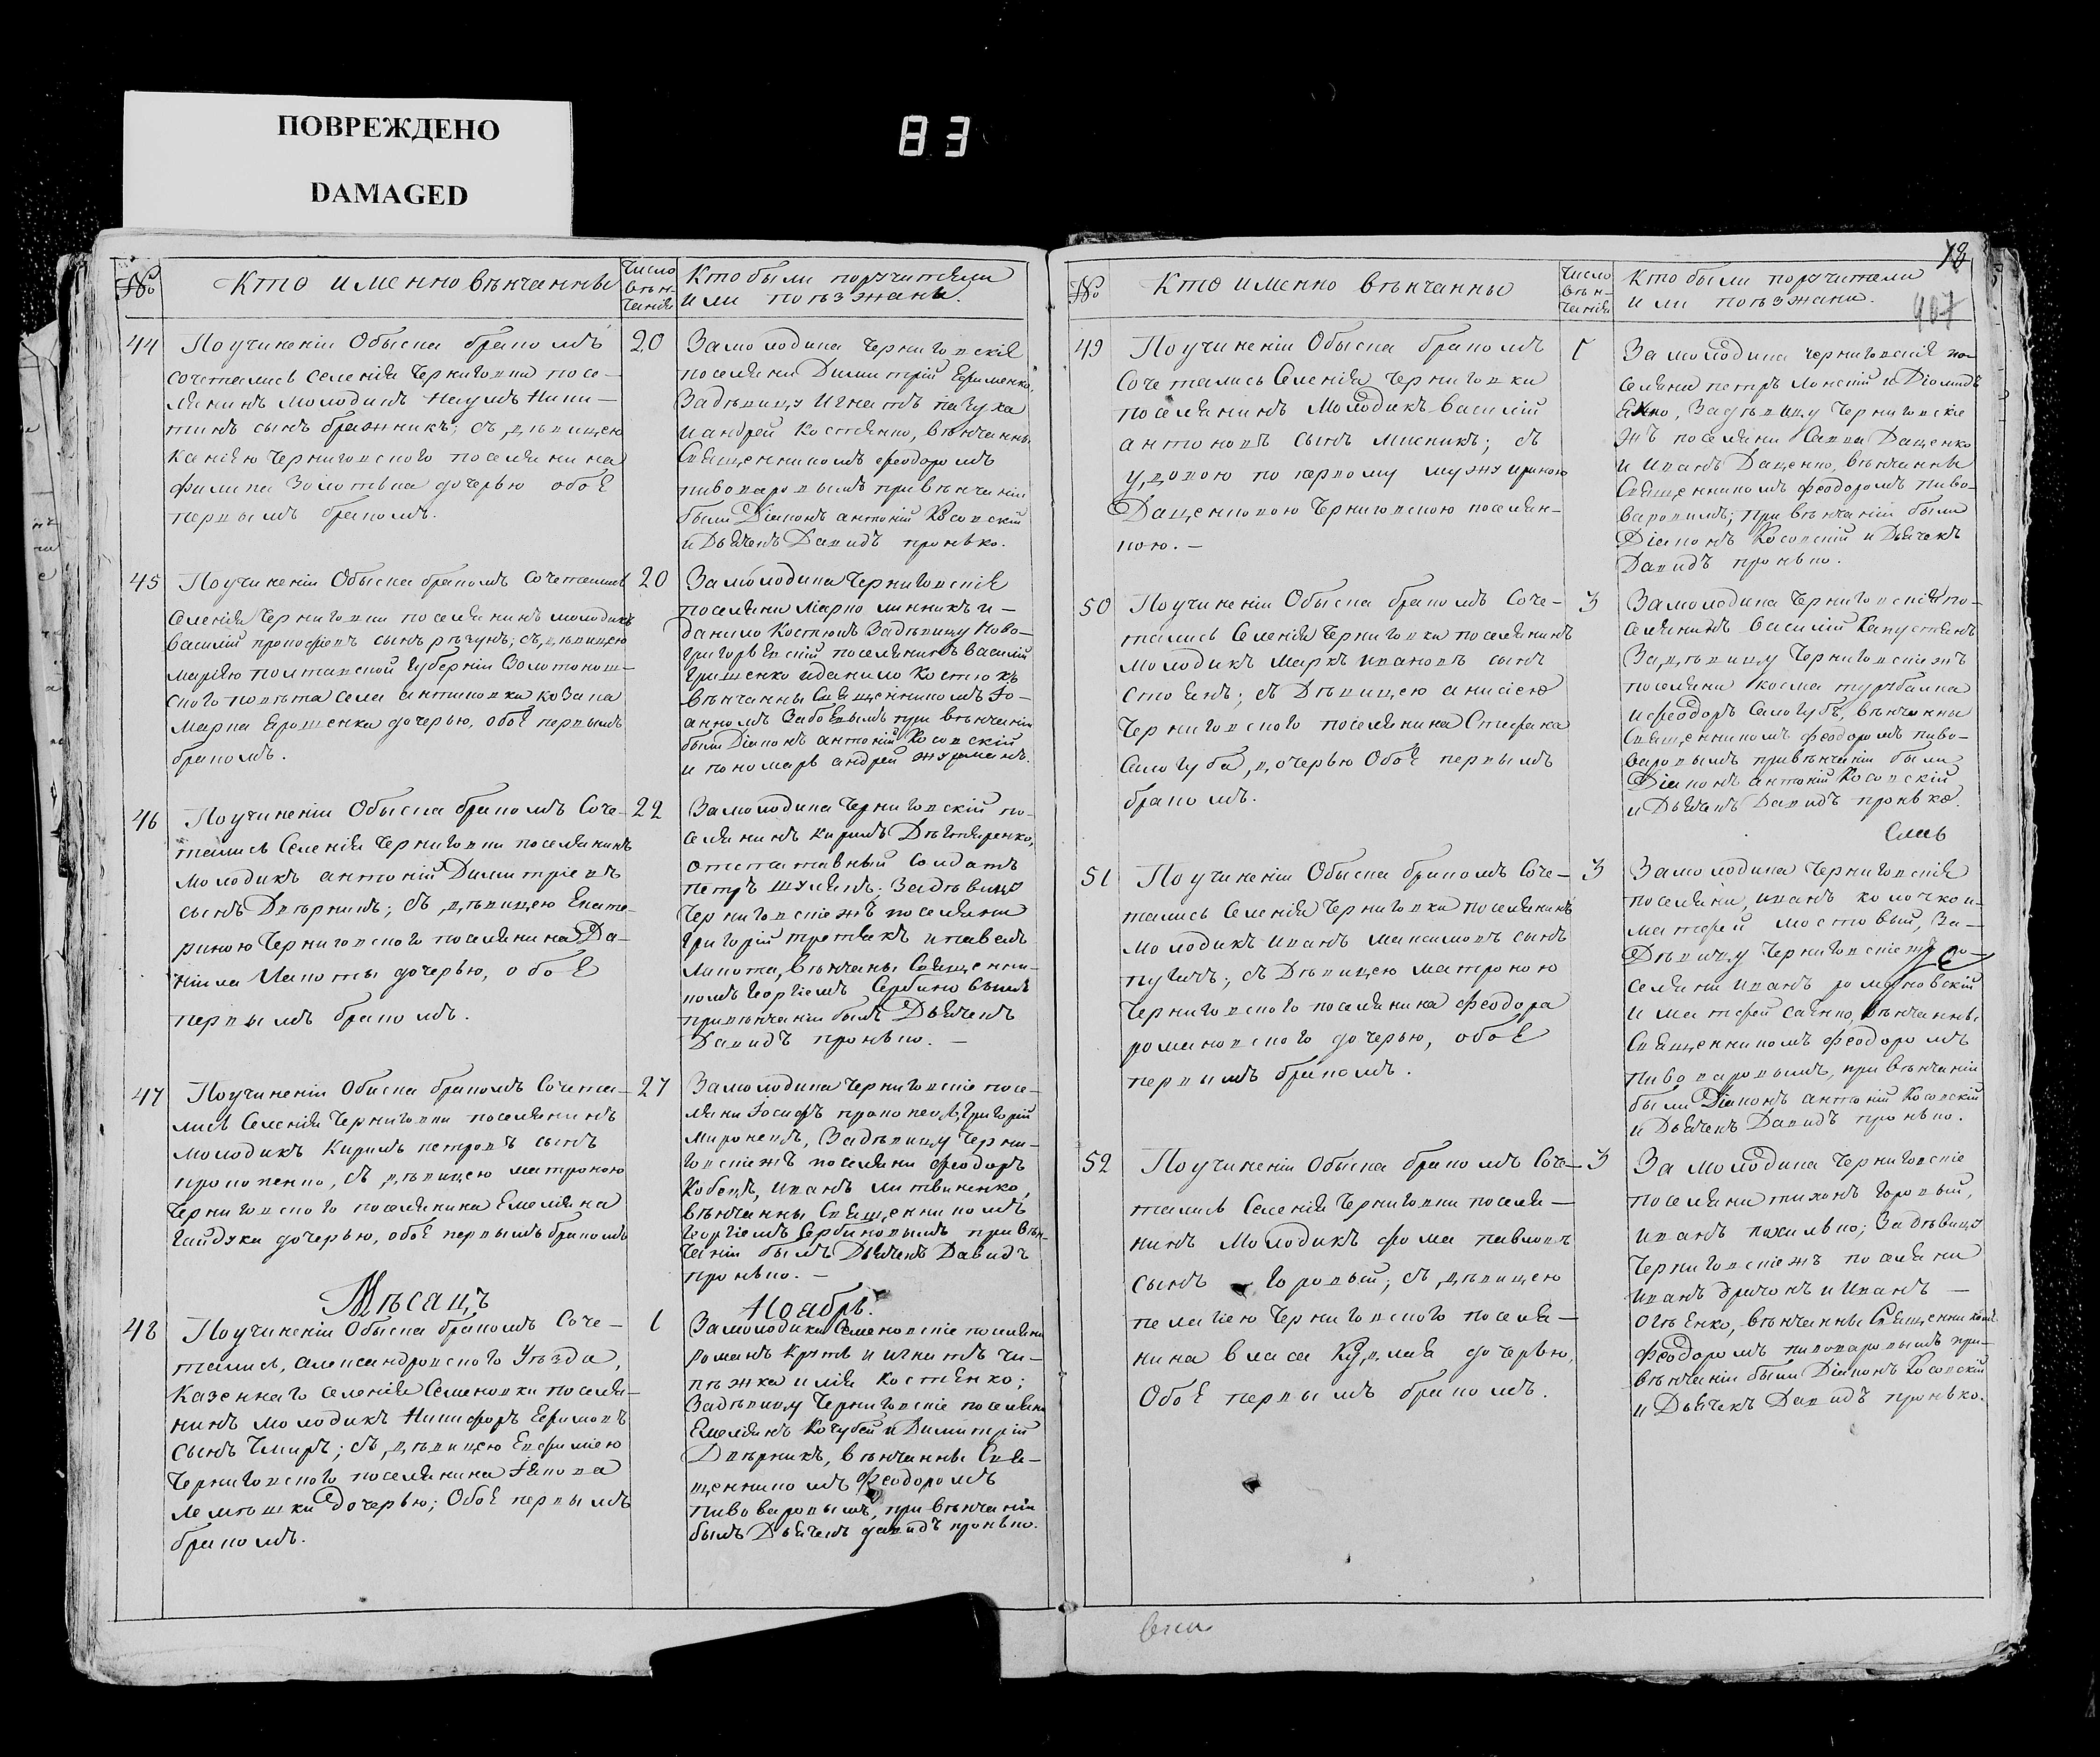 ПОВРЕЖДЕНО
DAMAGED
83
№
Кто именно вѣнчанны
Число
вѣн-
чанія
Кто были поручители
или поѣзжанѣ.
44
По учиненіи Обыска бракомъ
сочетались селенія Черниговки посе-
лянинъ молодикъ Наумъ Ники-
тинъ сынъ бражникъ; съ дѣвицею
Черниговского поселянина
дочерью обоѣ
первымъ бракомъ.
20
За молодика Черниговскіе
поселяни Димитрій Ефименко,
За дѣвицу Игнатъ
и андрей Костенко, вѣнчанны
Священникомъ феодоромъ
пивоваровымъ при вѣнчаніи
были Діаконъ антоній Косовскій
и Дьячекъ Давидъ пронько.
45
По учиненіи Обыска бракомъ Сочетались
селенія Черниговки поселянинъ молодикъ
Василій прокофіевъ сынъ рѣзунъ; съ дѣвицею
маріею полтавской Губерніи Золотонош-
ского повѣта села антиповки козака
Марка Ерошенка дочерью, обоѣ первымъ
бракомъ.
20
За молодика Черниговскіе
поселяни Марко линникъ и -
данило Костюкъ За дѣвицу Ново-
григорьевскій поселянинъ василій
Грищенко и данило Костюкъ
вѣнчанны Священникомъ Іо-
анномъ при вѣнчаніи
были Діаконъ антоній Косовскій
и пономарь андрей
46
По учиненіи Обыска бракомъ Соче-
тались Селенія Черниговки поселянинъ
молодикъ антоній Димитріевъ
сынъ Дверникъ; съ дѣвицею Екате-
риною Черниговского поселянина Да-
ніила Липоты дочерью, обоѣ
первымъ бракомъ.
22
За молодика Черниговскій по-
селянинъ кирилъ Дѣхтяренко,
отставный Солдатъ
петръ шулякъ. За дѣвицу
Черниговскіежъ поселяни
григорій третякъ и павелъ
Липота, вѣнчаны Священни-
комъ Георгіемъ Сербиновымъ
при вѣнчаніи былъ Дьячекъ
Давидъ пронько. -
47
По учиненіи Обыска бракомъ Сочета-
лись Селенія Черниговки поселянинъ
молодикъ Кирилъ петровъ сынъ
прокопенко, съ дѣвицею матроною
Черниговского поселянина Емеляна
Гайдука дочерью, обоѣ первымъ бракомъ
27
За молодика Черниговскіе посе-
ляни Іосифъ Григорій
миронецъ, За дѣвицу Черни-
говскіежъ поселяни феодоръ
Кобецъ, иванъ литвиненко,
вѣнчанны Священникомъ
Георгіемъ Сербиновымъ при вѣн-
чаніи былъ Дьячекъ Давидъ
пронько. -
Мѣсацъ
Ноабрь.
48
По учиненіи Обыска бракомъ Соче-
тались, александровского Уѣзда,
Казеннаго селенія Семеновки поселя-
нинъ молодикъ Никифоръ Ефимовъ
сынъ Чмиръ; съ дѣвицею Евфиміею
Черниговского поселянина Іакова
дочерью; Обоѣ первымъ
бракомъ.
1
За молодика Семеновскіе поселяни
романъ и игнатъ чи-
жка илія костенко;
За дѣвицу Черниговскіе поселяни
Емелянъ Кочубей и Димитрій
Дверникъ, вѣнчанны Свя-
щенникомъ Феодоромъ
пивоваровымъ, при вѣнчаніи
былъ Дьячекъ давидъ пронько.
18
407
№
Кто именно вѣнчанны
Число
вѣн-
чанія
Кто были поручители
или поѣзжани.
49
По учиненіи Обыска бракомъ
Сочетались Селенія Черниговки
поселянинъ молодикъ василій
антоновъ сынъ мисникъ; съ
удовою по первому мужу ириною
Даценковою Черниговскою поселян-
кою. -
1
За молодика черниговскіе по-
селяни петръ
За удовицу Черниговскіе
жъ поселяни Савва Даценко
и иванъ Даценко, вѣнчанны
Священникомъ феодоромъ пиво-
варовимъ; При вѣнчаніи были
Діаконъ Косовскій и Дьячекъ
Давидъ пронько.
50
По учиненіи Обыска бракомъ Соче-
тались Селенія Черниговки поселянинъ
молодикъ маркъ ивановъ сынъ
стоянъ; съ Дѣвицею анисіею
Черниговского поселянина Стефана
Салогуба, дочерью Обоѣ первымъ
бракомъ.
3
За молодика Черниговскій по-
селянинъ василій Капустянъ
За дѣвицу Черниговскіежъ
поселяни косма
и феодоръ Салогубъ, вѣнчанны
Священникомъ феодоромъ пиво-
варовымъ при вѣнчаніи были
Діаконъ антоній Косовскій
и Дьячекъ Давидъ пронько.
51
По учиненіи Обыска бракомъ Соче-
тались Селенія Черниговки поселянинъ
молодикъ иванъ максимовъ сынъ
пугачъ; съ Дѣвицею матроною
Черниговского поселянина феодора
романовского дочерью, обоѣ
первымъ бракомъ.
3
За молодика Черниговскіе
поселяни, иванъ
матфей мостовый, За-
Дѣвицу Черниговскіежъ по-
селяни иванъ романовскій
и матфей саенко, вѣнчанны
Священникомъ Феодоромъ
пивоваровымъ, при вѣнчаніи
были Діаконъ антоній Косовскій
и Дьячекъ Давидъ пронько.
52
По учиненіи Обыска бракомъ Соче-
тались Селенія Черниговки поселя-
нинъ молодикъ фома павловъ
сынъ горовый; съ дѣвицею
пелагіею Черниговского поселя-
нина власа дочерью,
Обоѣ первымъ бракомъ.
3
За молодика Черниговскіе
поселяни тихонъ горовый,
иванъ похилько; За дѣвицу
Черниговскіежъ поселяни
иванъ и Иванъ -
вѣнчанны Священникомъ
Феодоромъ пивоваровымъ при-
вѣнчаніи были Діаконъ Косовскій
и Дьячекъ Давидъ пронько.